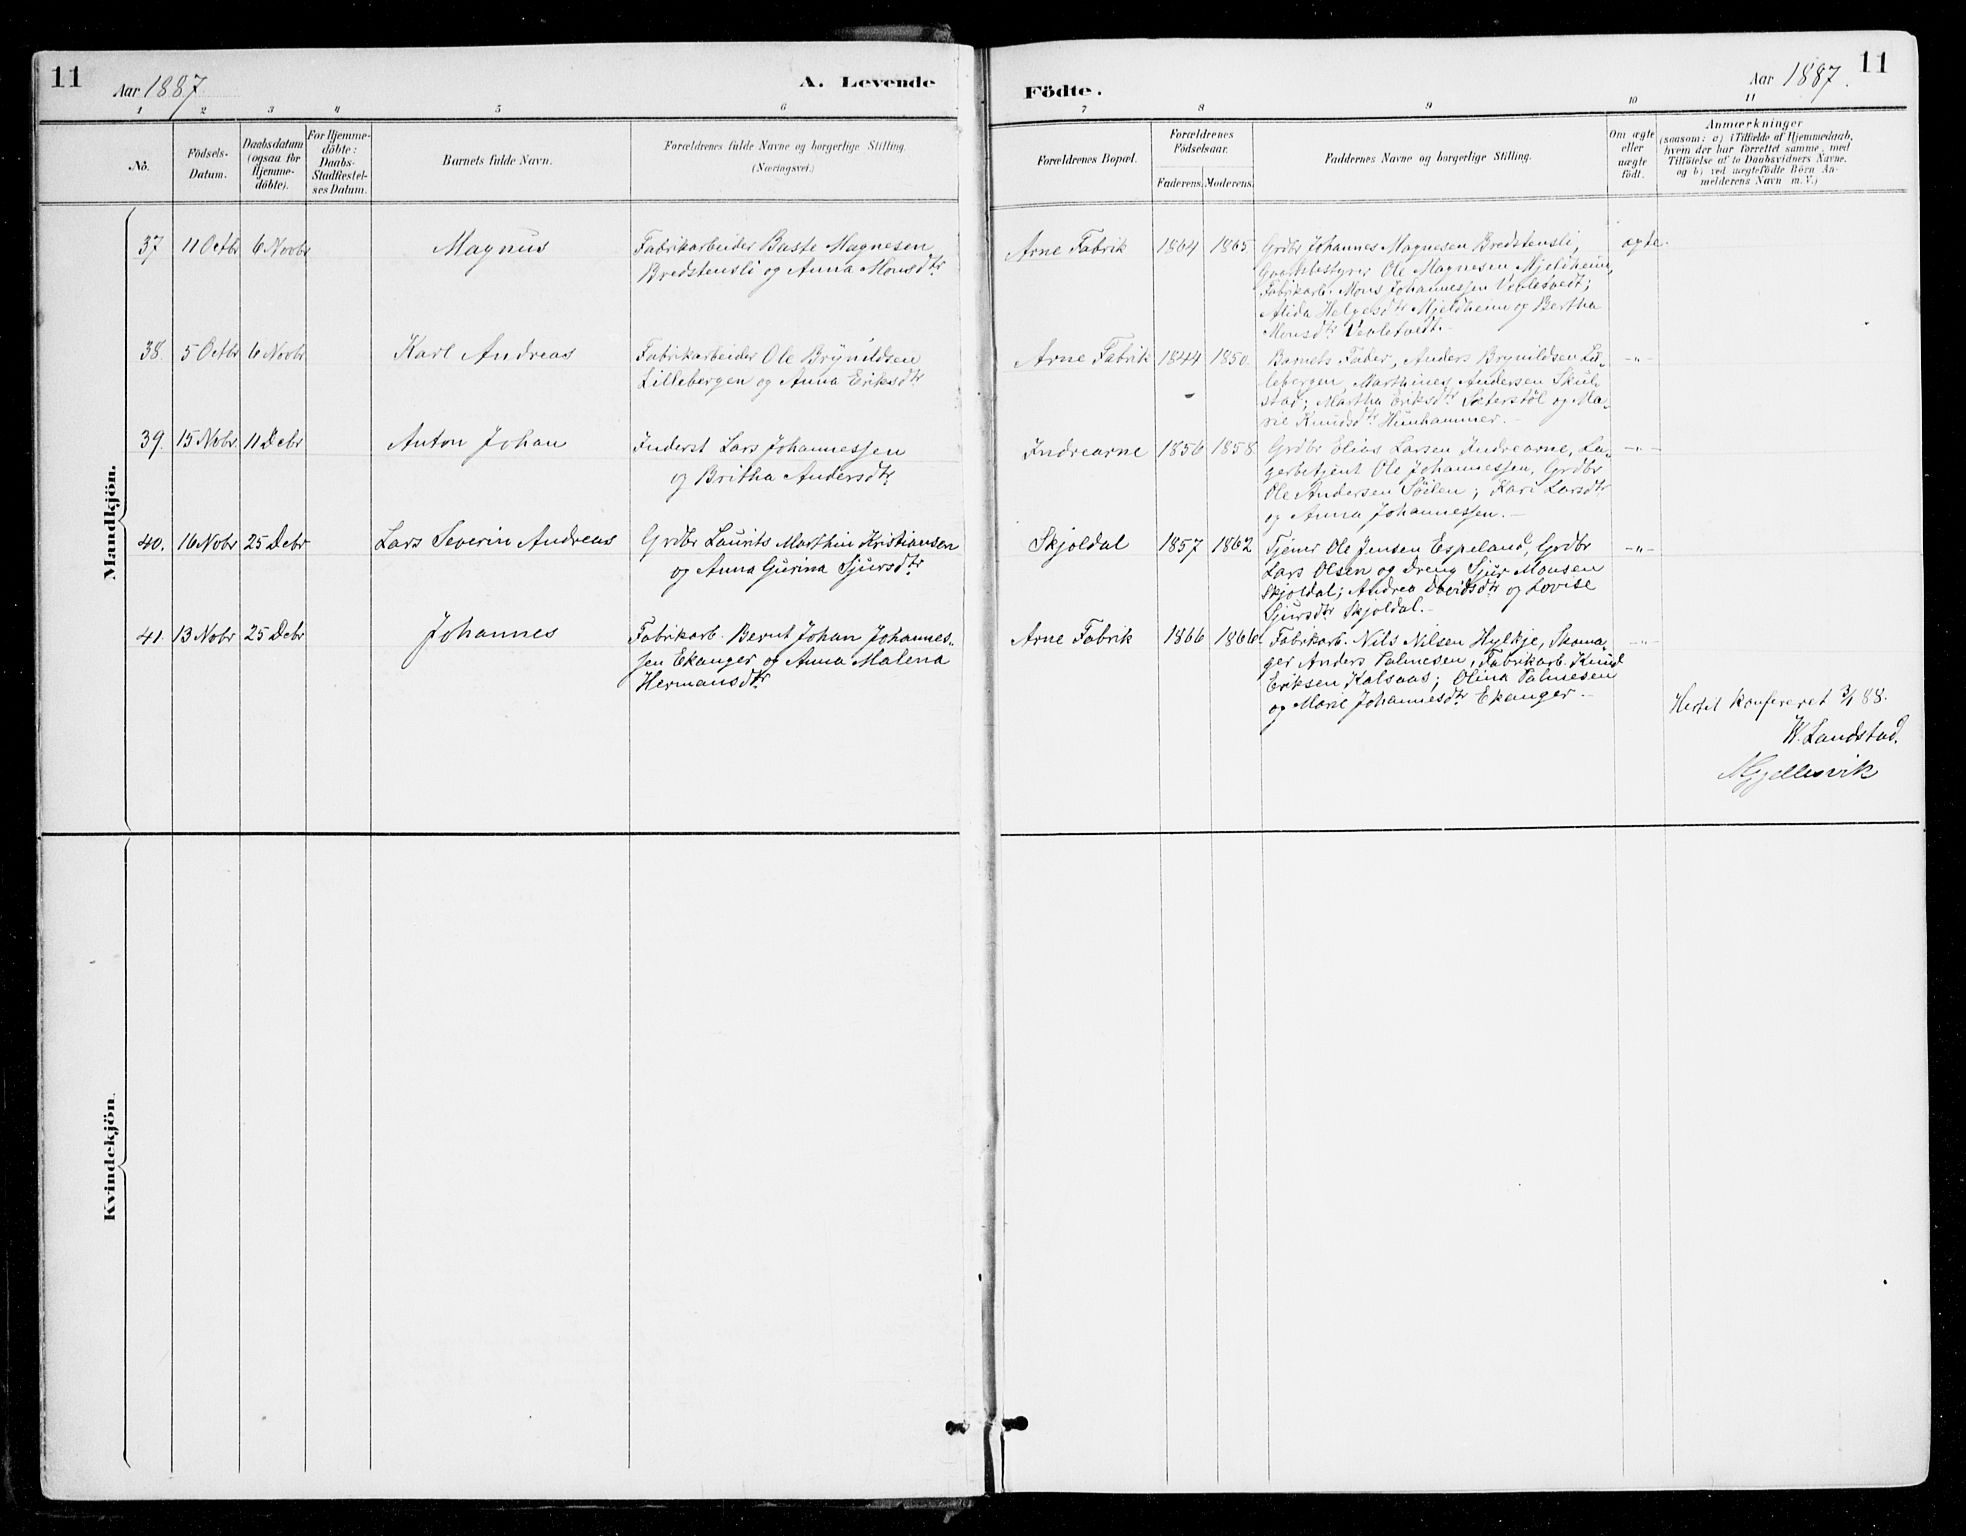 11
Aar 1887.
A. Levende
Födte.
Aar 1887.
11
1 2 3 4 5 6
7 8 9 10 11
No.
Födsels-
Datum.
Daabsdatum
(ogsaa for
Hjemme-
döbte).
For Hjemme-
döbte:
Daabs-
Stadfæstel-
ses Datum.
Barnets fulde Navn.
Forældrenes fulde Navne og borgerlige Stilling.
(Næringsvei.)
Forældrenes Bopæl.
Forældrenes
Födselsaar.
Faderens. Moderens.
Faddernes Navne og borgerlige Stilling.
Om ægte
eller
uægte
födt.
Anmærkninger
(saasom: a) i Tilfælde af Hjemmedaab,
hvem der har forrettet samme, med
Tilföielse af to Daabsvidners Navne,
og b) ved uægtefödte Börn An-
melderens Navn m. V.)
Mandkjön.
37. 11 Octbr 6 Novbr Magnus
Fabrikarbeider Baste Magnesen
Bredstensli og Anna Monsdtr
Arne Fabrik 1864 1865
Grdbr Johannes Magnesen Bredstensli,
Ole Magnesen Mjeldheim,
Fabrikarb. Mons Johannessen Veblesvedt;
Alida Helgesdtr Mjeldheim og Bertha
Monsdtr
ægte.
38. 5 Octbr 6 Novbr Karl Andreas
Fabrikarbeider Ole Brynildsen
Lillebergen og Anna Eriksdtr
Arne Fabrik 1844 1850.
Barnets Fader, Anders Brynildsen Lil-
lebergen, Marthines Andersen Skul-
stad; Martha Eriksdtr Sæterstöl og Ma-
rie Knudsdtr Hunhammer.
-"-
39. 15 Nobr 11 Debr Anton Johan
Inderst Lars Johannessen
og Britha Andersdtr
Indrearne 1856 1858.
Grdbr Elias Larsen Indrearne, La-
gerbetjent Ole Johannessen, Grdbr
Ole Andersen Söilen; Kari Larsdtr
og Anna Johannessen.
-"-
40. 16 Nobr 25 Debr Lars Severin Andreas
Grdbr Laurits Marthin Kristiansen
og Anna Gurina Sjursdtr
Skjoldal 1857 1862
Tjener Ole Jensen Espeland, Grdbr
Lars Olsen og Dreng Sjur Monsen
Skjoldal; Andrea Davidsdtr og Lovise
Sjursdtr Skjoldal.
-"-
41. 13 Nobr 25 Debr Johannes
Fabrikarb. Bernt Johan Johannes-
sen Ekanger og Anna Malena
Hermansdtr
Arne Fabrik 1866 1866.
Fabrikarb. Nils Nilsen Hylkje, Skoma-
ger Anders Palmesen, Fabrikarb. Knud
Eriksen Kalsaas; Olina Palmesen
og Marie Johannesdtr Ekanger.
-"-
Hertil konfereret 3/1 88.
W. Landstad.
MGjellesvik
Kvindekjön.